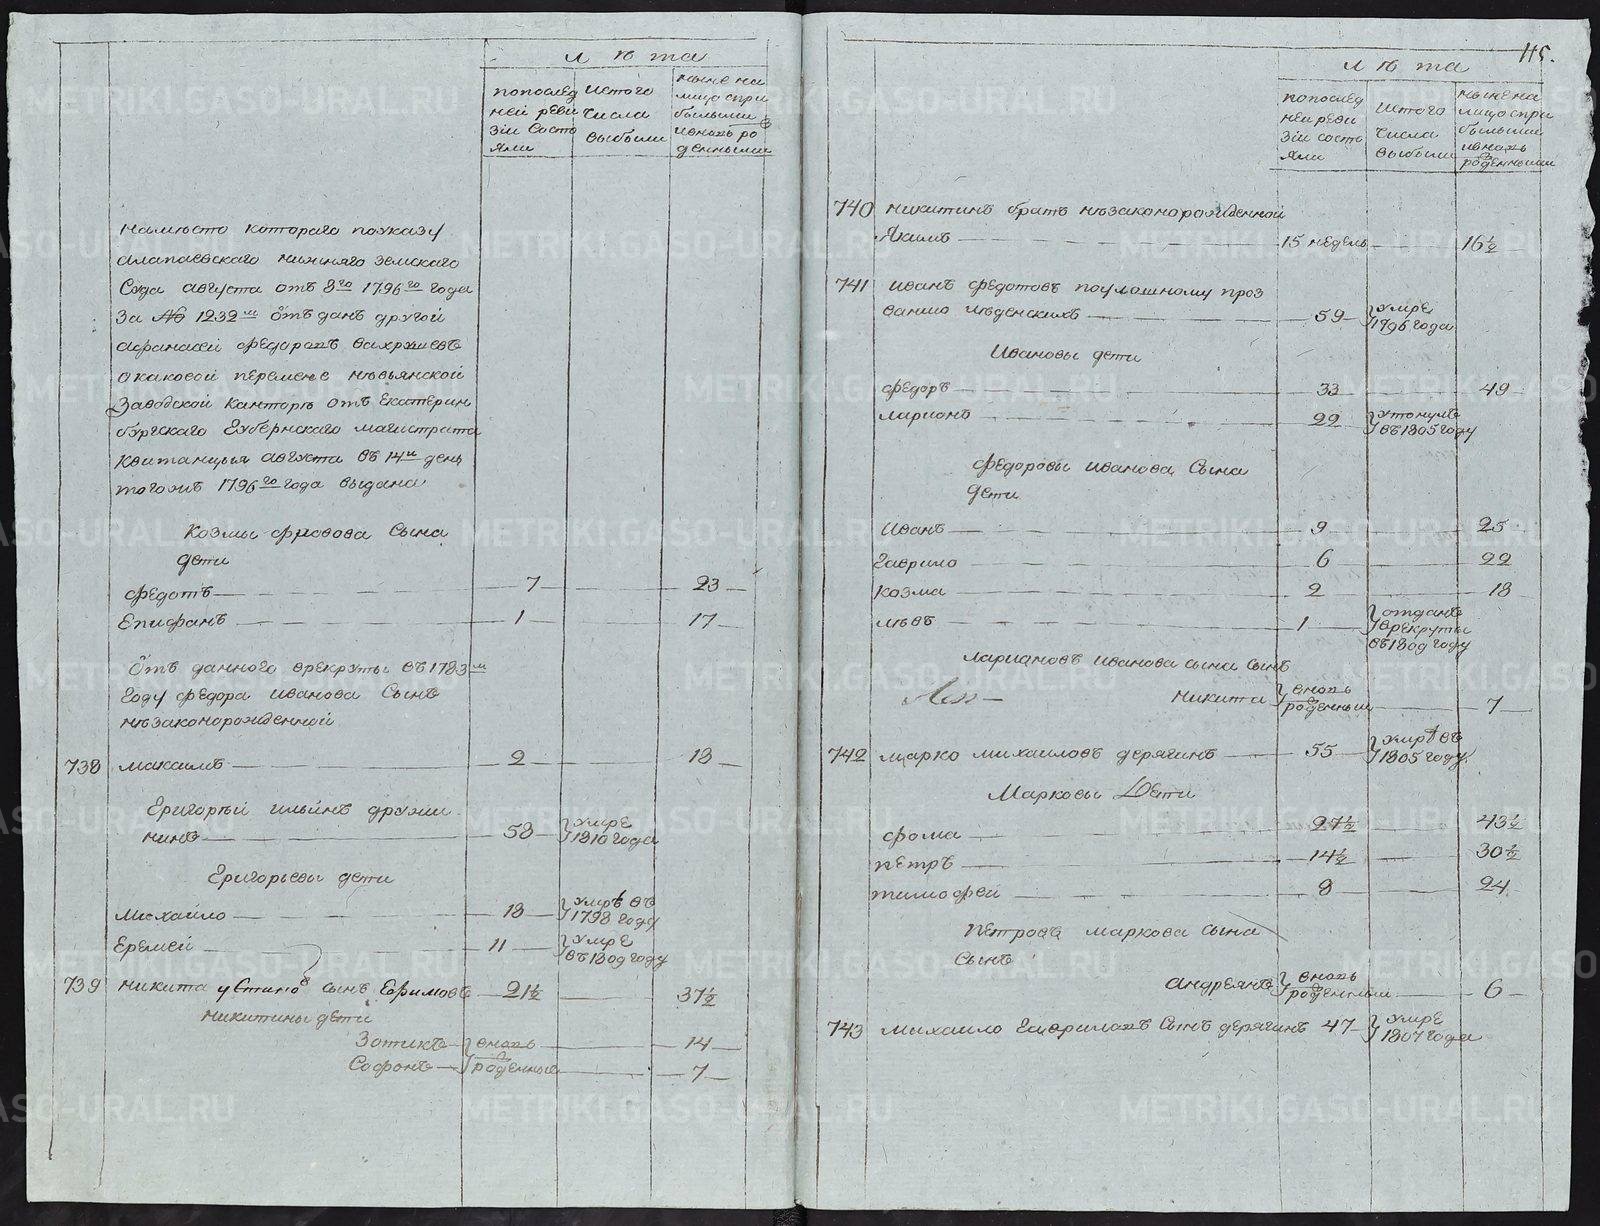 лѣта
попослед
ней реви
зіи состо
яли
истого
числа
выбыли
ныне на
лицо спри
былыми
ивновь ро
денными
намѣсто котораго поуказу
алапаевскаго нижняго земскаго
Суда августа отъ 8го 1796го года
За № 1232м отъ данъ другой
афанасей федоровъ вахрушевъ
окаковой перемене нѣвьянской
Заводской канторѣ отъ екатерин
бургскаго Губернскаго магистрата
квитанцыя августа въ 14й день
тогожъ 1796го года выдана
козмы сына
дети
федотъ 7 23
Епифанъ 1 17
отъ данного врекруты въ 1783м
году федора иванова Сынъ
нѣзаконорожденной
738 максимъ 2 18
Григорѣй ильинъ дружи
нинъ 58 умре 1810 года
Григорьевы дети
михайло 18 умрѣ въ 1798 году
Еремей 11 умре въ 1809 году
739 никита устиновъ сынъ Ефимовъ 21½ 37½
никитины дети
Зотикъ вновь 14
Софронъ рожденные 7
115.
лѣта
попослед
ней реви
зіи состо
яли
истого
числа
выбыли
ныне на
лицо спри
былыми
ивновь
роденными
740 никитинъ братъ нѣзаконорожденной
Якимъ 15 недель 16½
741 иванъ федотовъ поулошному проз
ванию 59 умре 1796 года
Ивановы дети
федоръ 33 49
ларионъ 22 утонулъ въ 1805 году
федоровы иванова Сына
дети
Иванъ 9 25
Гаврило 6 22
козма 2 18
лѣвъ 1 отданъ врекруты въ 1809 году
ларионовъ иванова сына сынъ
никита вновь роденный 7
742 марко михаиловъ дерягинъ 55 умрѣ въ 1805 году
Марковы Дети
фома 27½ 43½
петръ 14½ 30½
тимофей 8 24
петровъ маркова сына
Сынъ
андреянъ вновь роденный 6
743 михаило Гавриловъ Сынъ дерягинъ 47 умре 1807 года
METRIKI.GASO-URAL.RU